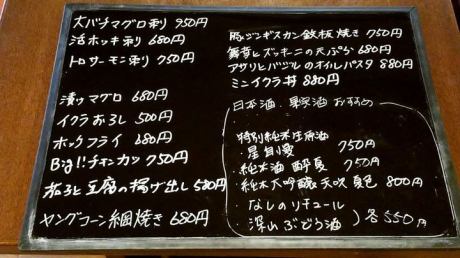 大バチマグロ刺り 950円
活ホッキ刺り 680円
トロサーモン刺り 750円
漬けマグロ 680円
イクラおろし 500円
ホッケフライ 680円
Big!!チキンカツ 750円
茄子と豆腐の揚げ出し 580円
ヤングコーン網焼き 680円
豚ジンギスカン鉄板焼き 750円
舞茸とズッキーニの天ぷら 680円
アサリとバジルのオイルパスタ 880円
ミニイクラ丼 880円
日本酒、果実酒 おすすめ
特別純米生原酒
750円
・純米酒 酔夏 750円
・純米大吟醸 天吹 夏色 800円
なしのリキュール
深山ぶどう酒 ) 各550円